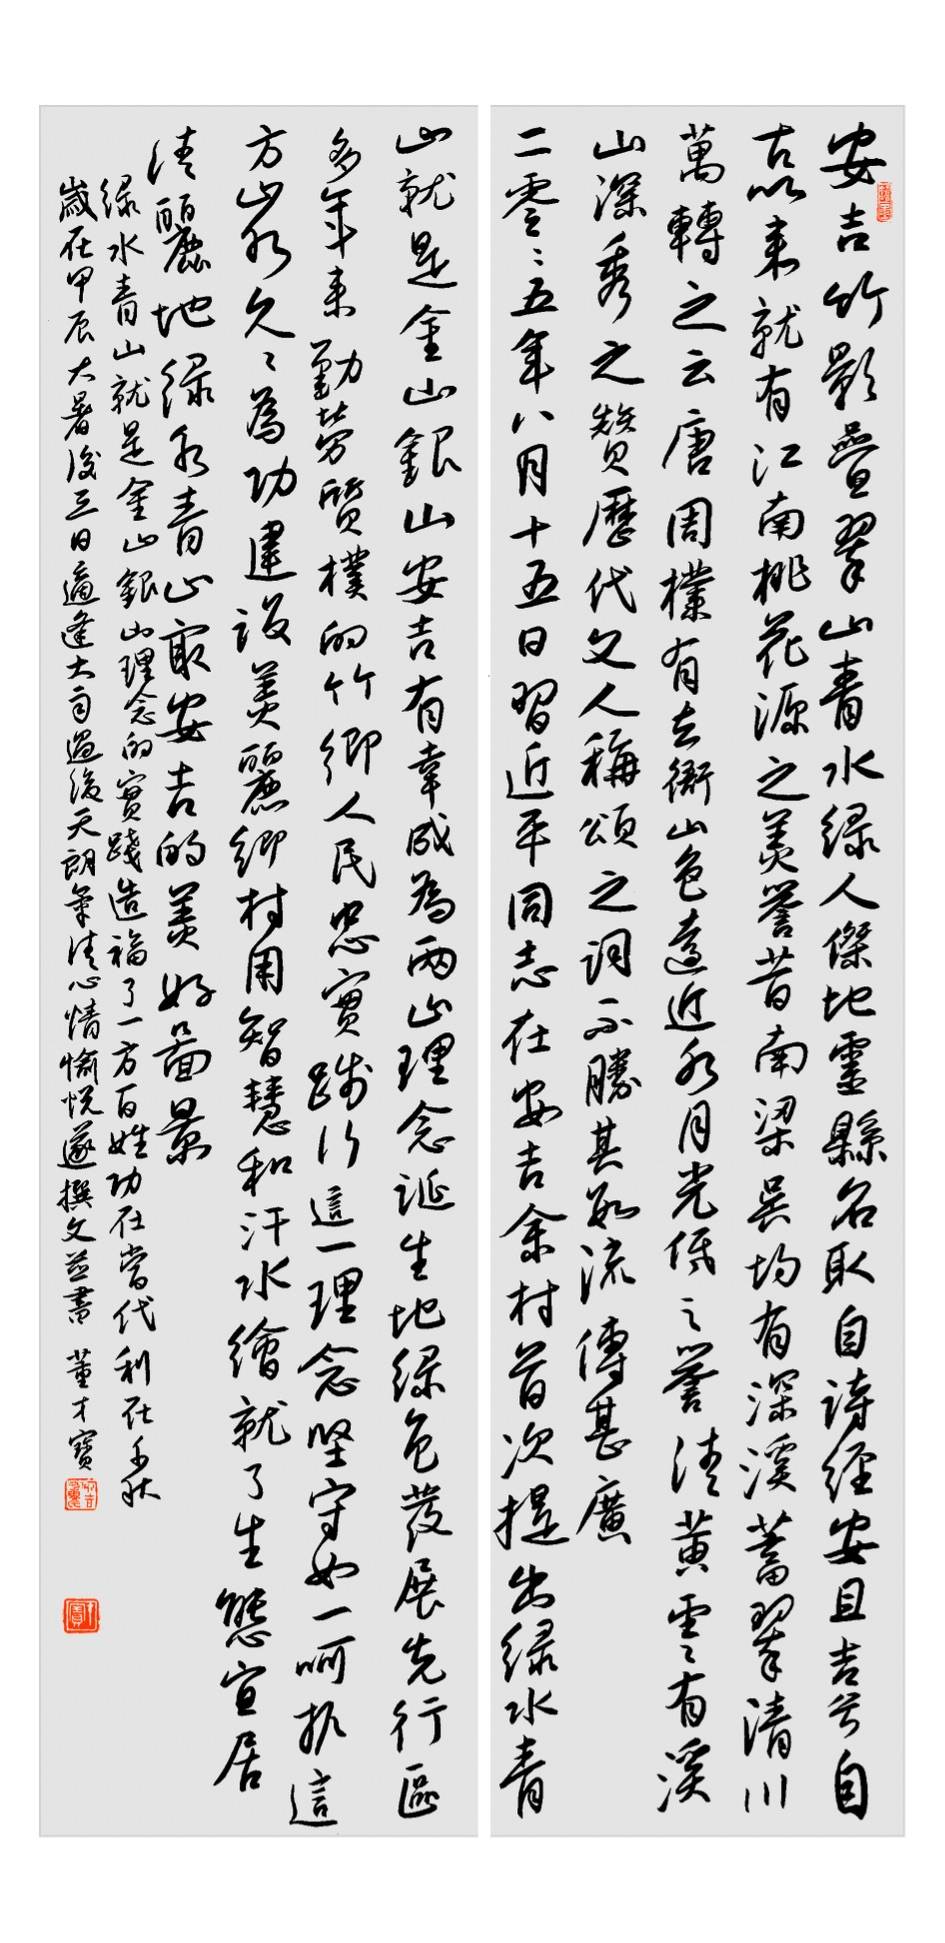 安吉竹影疊翠山青水绿人傑地靈縣名取自詩經安且吉兮自
古以来就有江南桃花源之美誉昔南梁吴均有深溪蓄翠清川
萬轉之云唐周樸有去衙山色遠近水月光低之誉清黄雲有溪
山深秀之贊歷代文人稱頌之詞不勝其數流傳甚廣
二零零五年八月十五日習近平同志在安吉余村首次提出绿水青
山就是金山銀山安吉有幸成為兩山理念誕生地绿色發展先行區
多年来勤勞質樸的竹鄉人民忠實踐行這一理念堅守如一呵护這
方山水久久為功建設美麗鄉村用智慧和汗水繪就了生態宜居
清麗地绿水青山最安吉的美好圖景
绿水青山就是金山銀山理念的實踐造福了一方百姓功在當代利在千秋
歲在甲辰大暑後三日適逢大雨過後天朗氣清心情愉悦遂撰文並書 董才寶